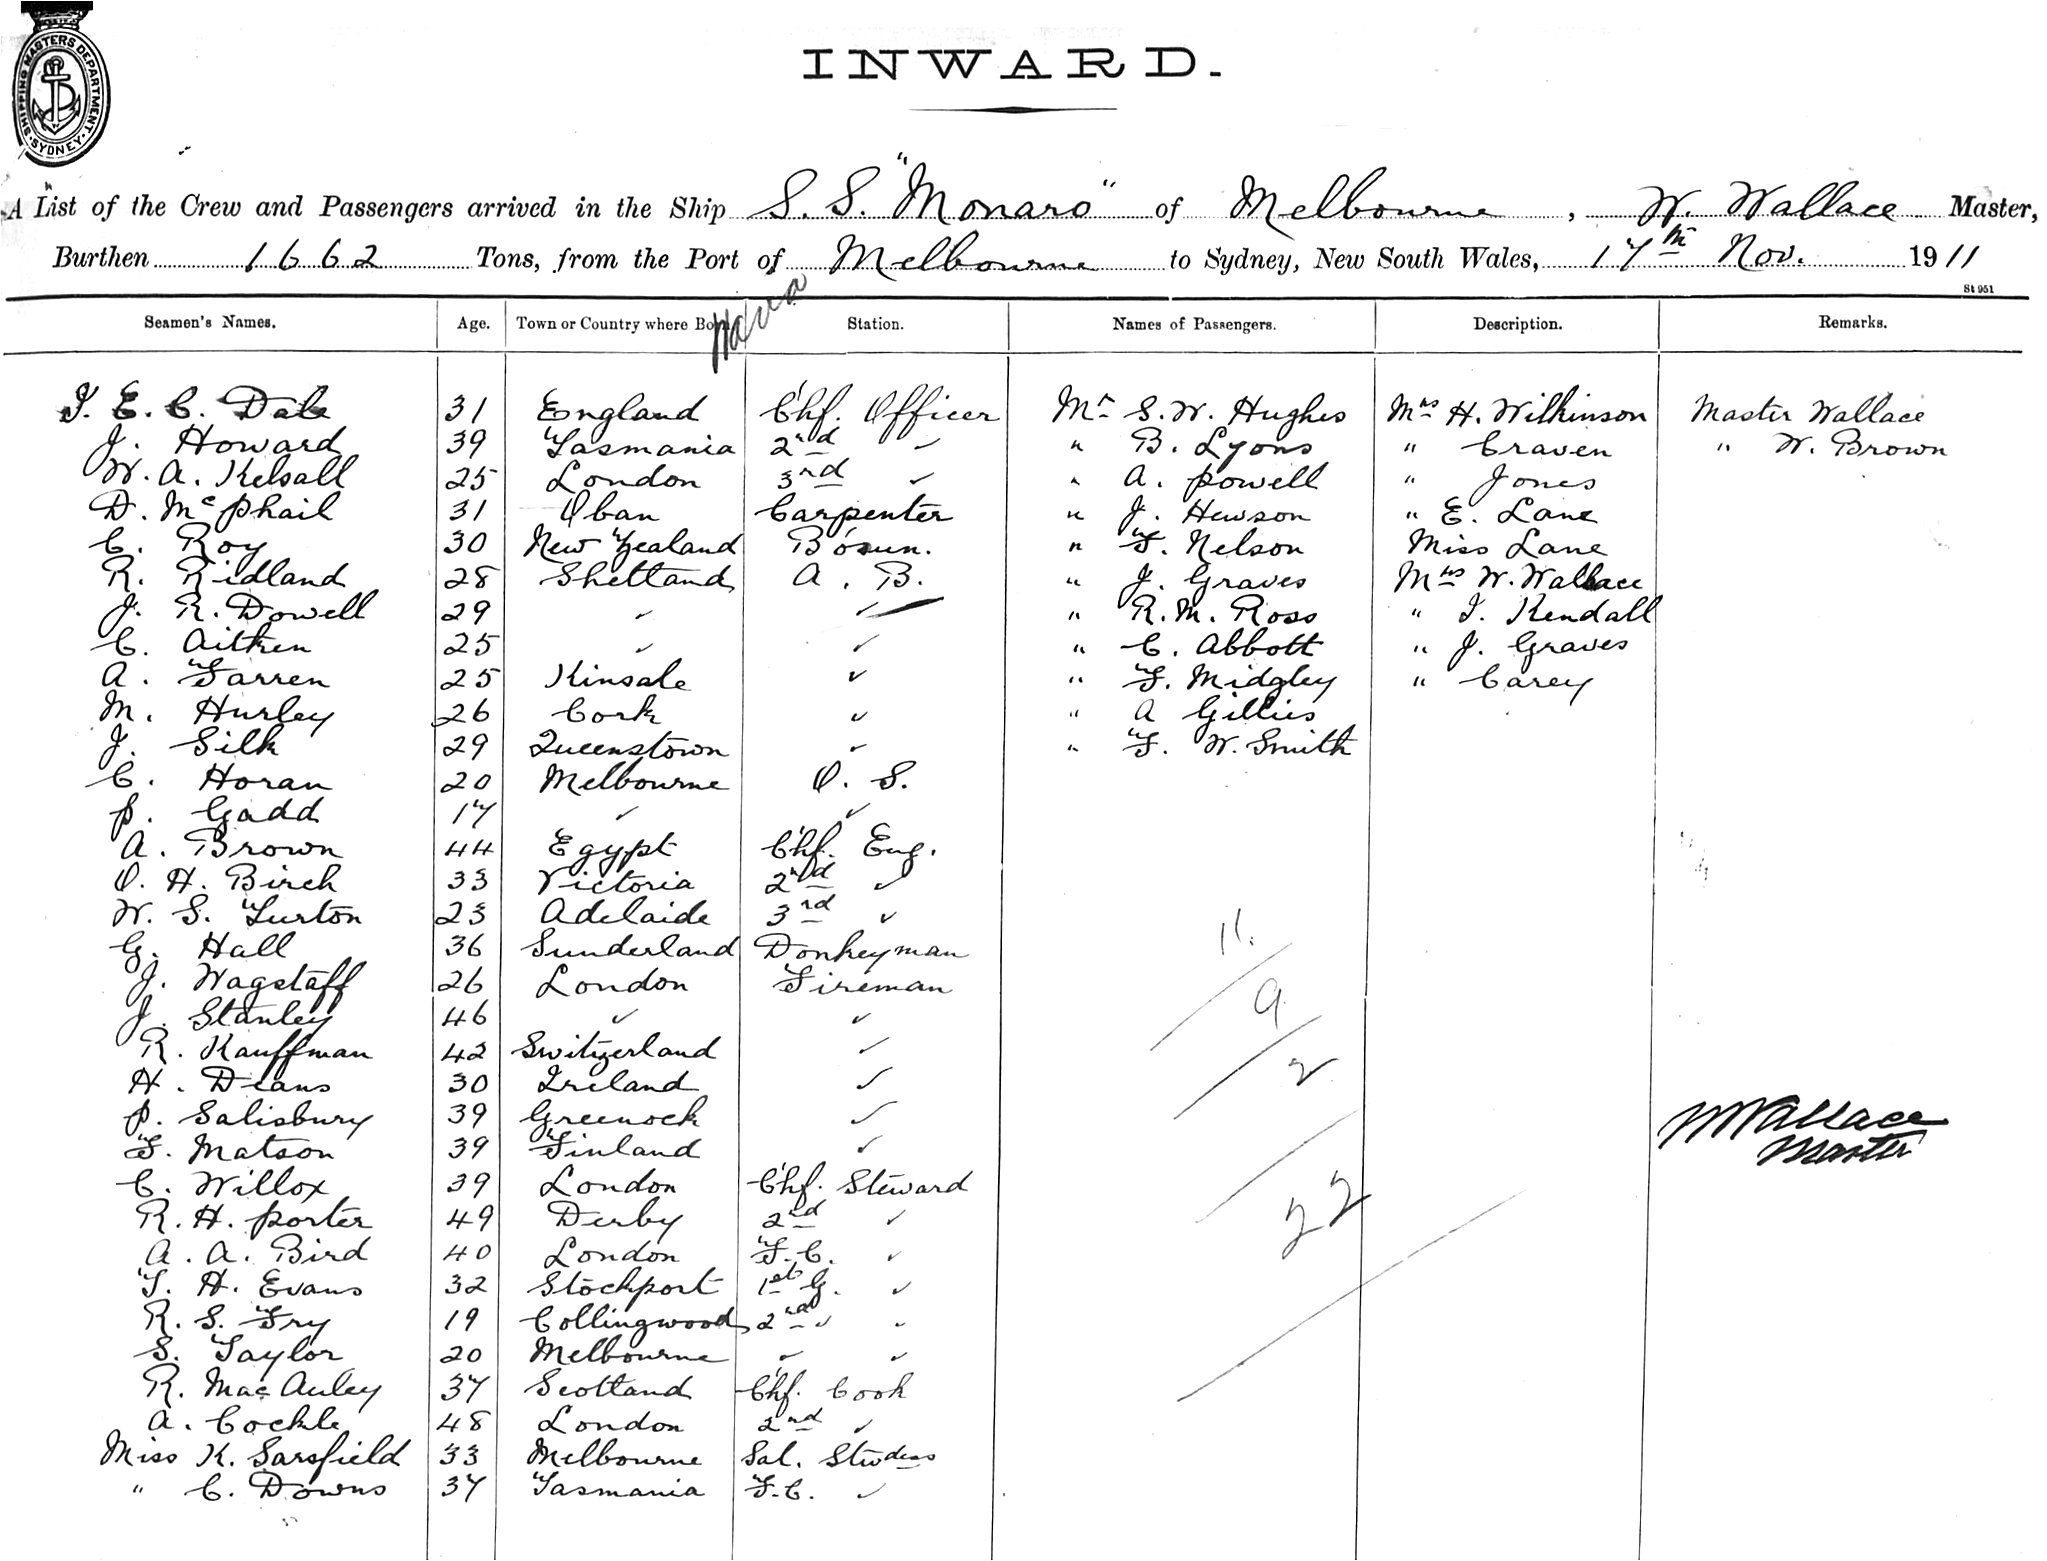 SHIPPING MASTERS DEPARTMENT. SYDNEY.
INWARD.
A List of the Crew and Passengers arrived in the Ship S.S. "Monaro" of Melbourne, W. Wallace Master,
Burthen 1662 Tons, from the Port of Melbourne to Sydney, New South Wales, 17th Nov. 1911
St 951
Seamen's Names. Age. Town or Country where Born Station. Names of Passengers. Description. Remarks.
I. E. C. Dale 31 England Chf. Officer Mr S. W. Hughes Mrs H. Wilkinson Master Wallace
J. Howard 39 Tasmania 2nd " " B. Lyons " Craven " W. Brown
W. A. Kelsall 25 London 3rd " " A. Powell " Jones
D. McPhail 31 Oban Carpenter " J. Hewson " E. Lane
C. Roy 30 New Zealand Bosun. " F. Nelson Miss Lane
R. Ridland 28 Shetland A. B. " J. Graves Mrs W. Wallace
J. R. Dowell 29 " " " R. M. Ross " I. Kendall
C. Aitken 25 " " " C. Abbott " J. Graves
A. Farren 25 Kinsale " " F. Midgley " Carey
M. Hurley 26 Cork " " A Gillies
J. Silk 29 Queenstown " " F. W. Smith
C. Horan 20 Melbourne O. S.
P. Gadd 17 " "
A. Brown 44 Egypt Chf. Eng.
O. H. Birch 33 Victoria 2nd "
W. S. Turton 23 Adelaide 3rd "
G. Hall 36 Sunderland Donkeyman 11.
J. Wagstaff 26 London Fireman 9
J. Stanley 46 " "
R. Kauffman 42 Switzerland " 2
H. Deans 30 Ireland "
P. Salisbury 39 Greenock " W Wallace
F. Matson 39 Finland " Master
C. Willox 39 London Chf. Steward
R. H. Porter 49 Derby 2nd " 22
A. A. Bird 40 London F.C. "
T. H. Evans 32 Stockport 1st G. "
R. S. Fry 19 Collingwood 2nd " "
S. Taylor 20 Melbourne " "
R. MacAuley 37 Scotland Chf. Cook
A. Cockle 48 London 2nd "
Miss K. Sarsfield 33 Melbourne Sal. Stwdess
" C. Downs 37 Tasmania F.C. "